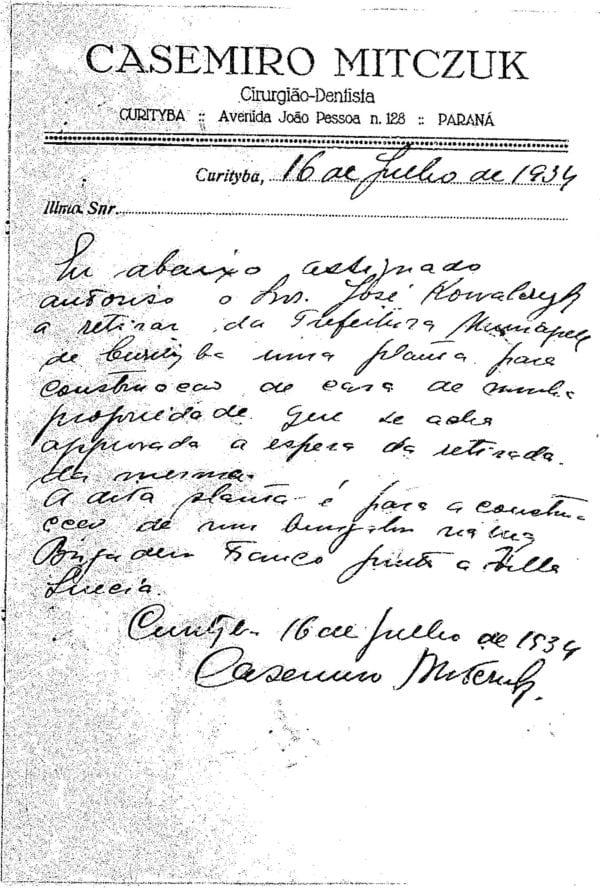 CASEMIRO MITCZUK
Cirurgião-Dentista
CURITYBA :: Avenida João Pessoa n. 128 :: PARANÁ
Curityba, 16 de Julho de 1934
Illmo. Snr.
Eu abaixo assignado
autoriso o Snr. José Kowalczyk
a retirar da Prefeitura
de Curityba uma planta para
construcção de casa de minha
propriedade que se acha
approvada a espera da retirada
da mesma.
A dita planta é para a constru-
cção de um bungalow na rua
Brigadeiro Franco junto a Villa
Lucia.
Curityba 16 de Julho de 1934
Casemiro Mitczuk.